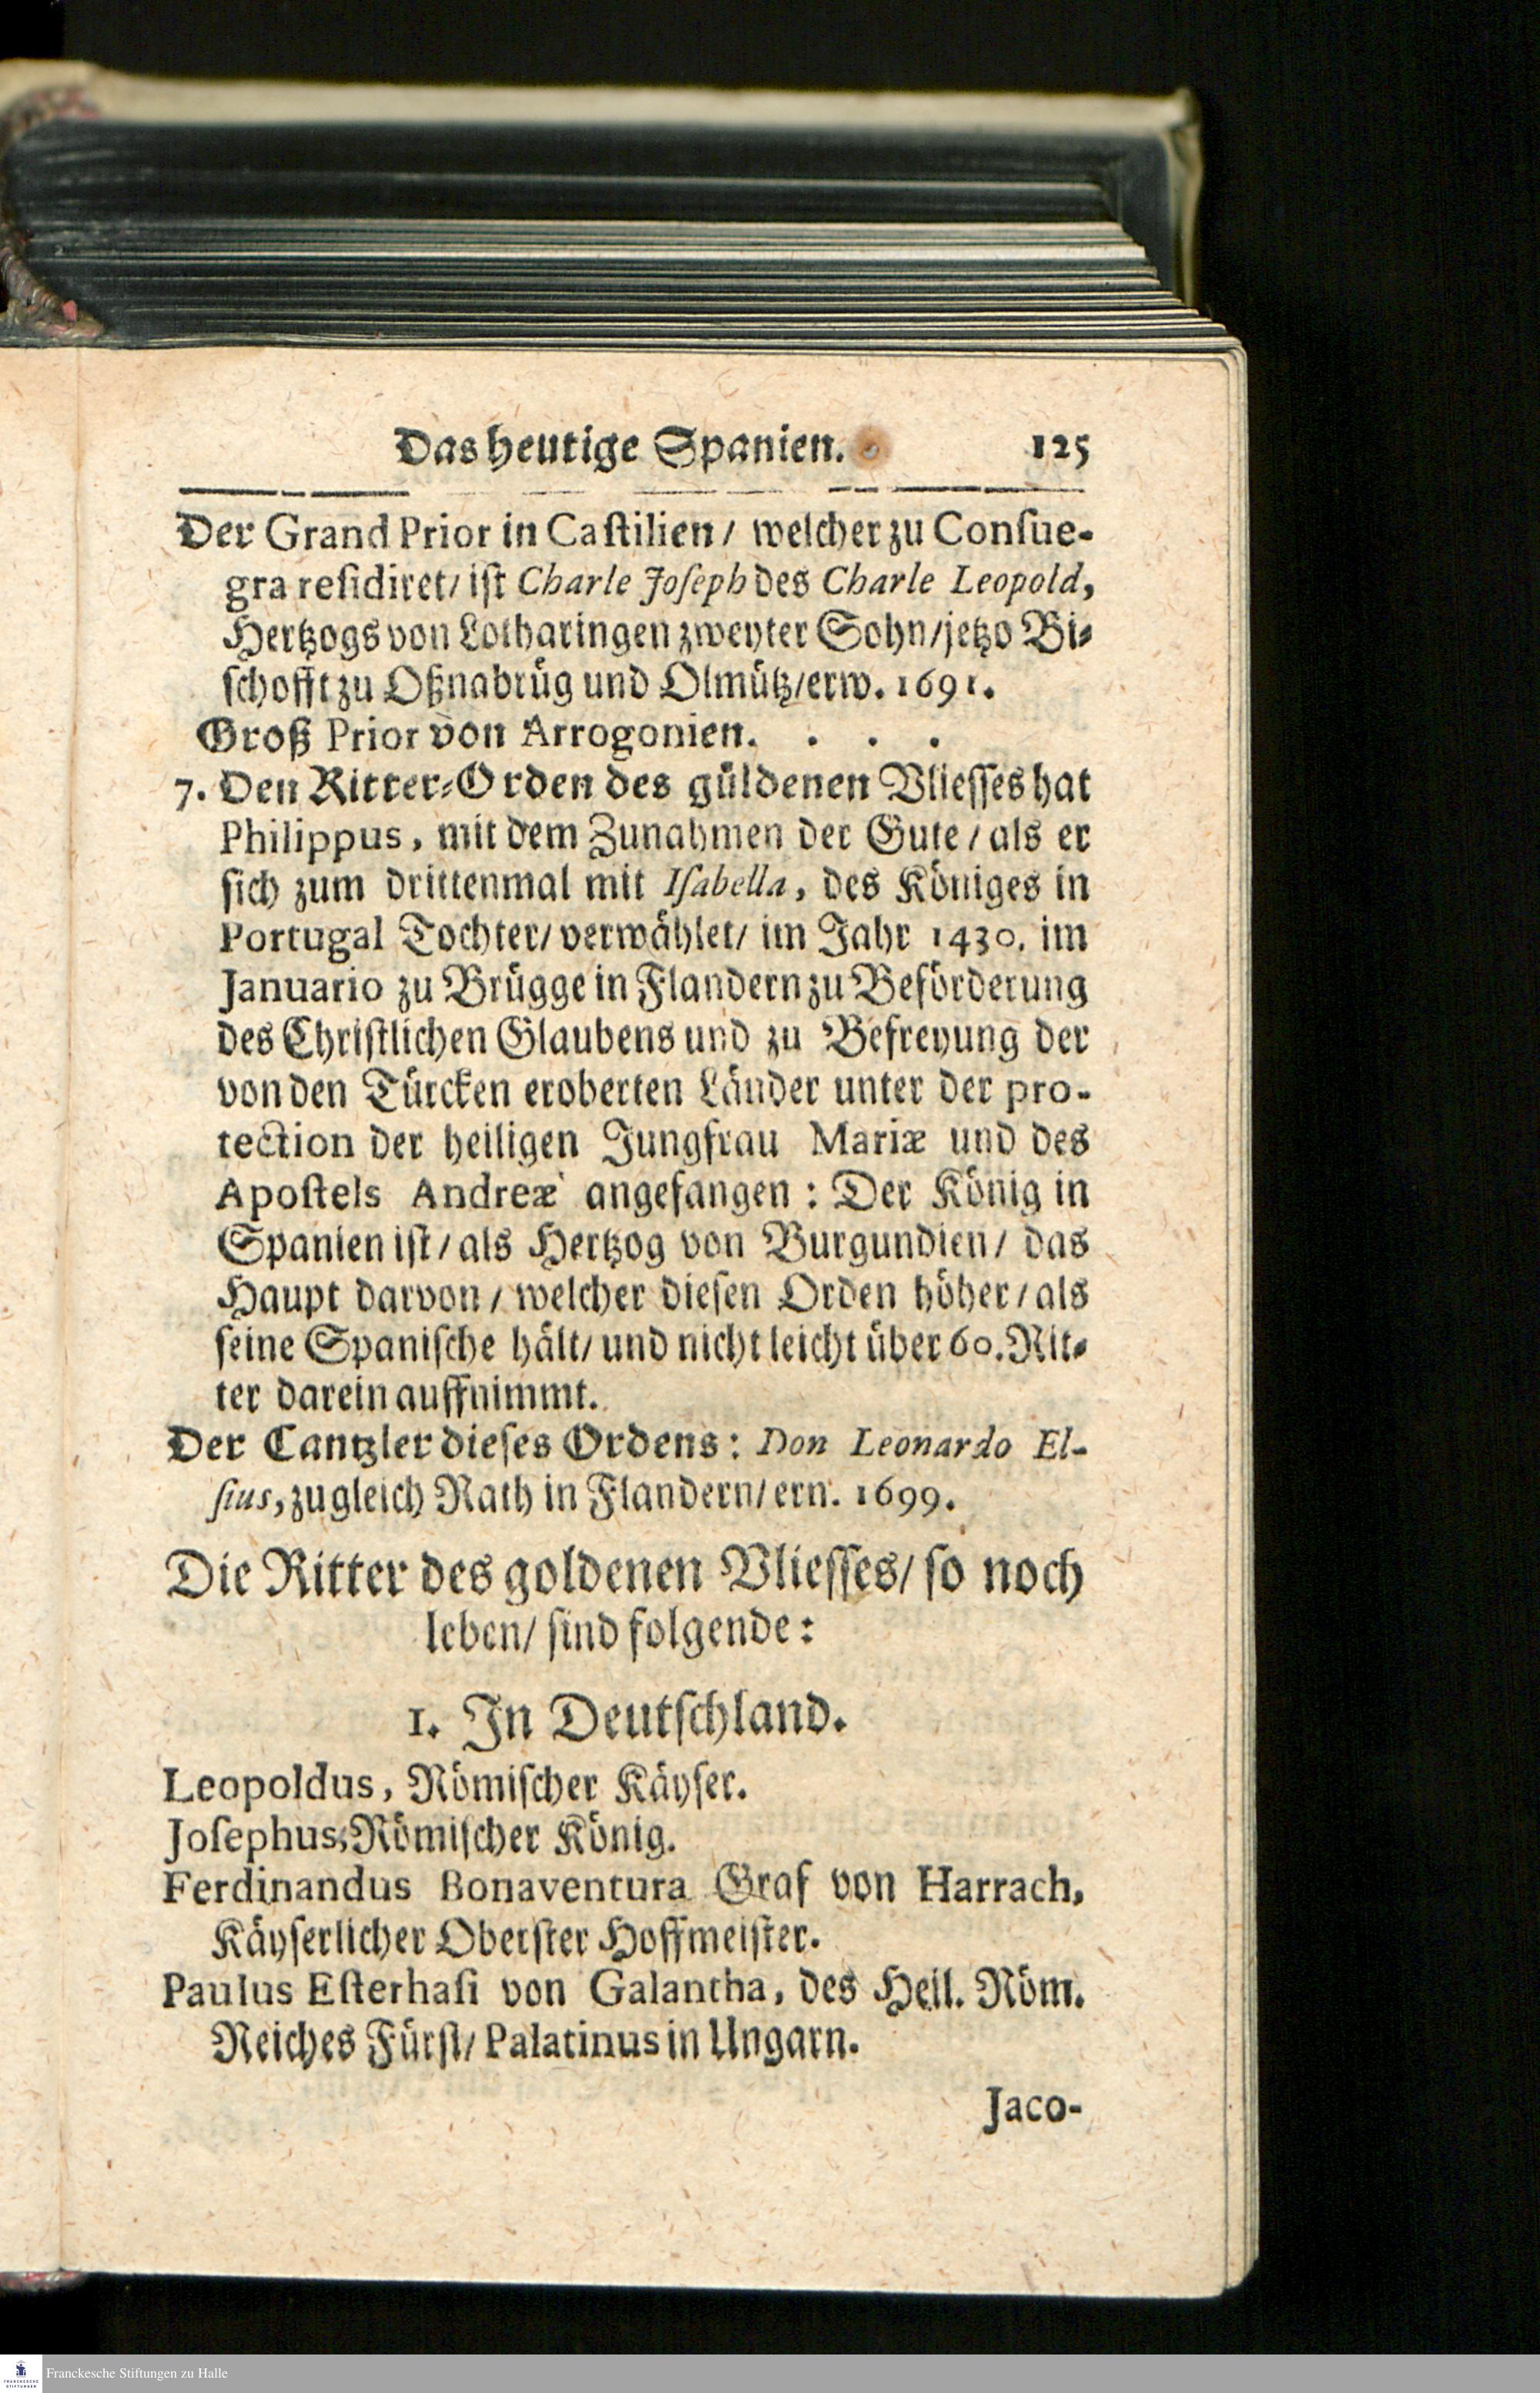 Das heutige Spanien. 125
Der Grand Prior in Caſtilien/ welcher zu Conſue-
gra reſidiret/ iſt Charle Joſeph des Charle Leopold,
Hertzogs von Lotharingen zweyter Sohn/jetzo Bi-
ſchofft zu Oßnabrüg und Olmütz/erw. 1691.
Groß Prior von Arrogonien. . . .
7. Den Ritter-Orden des güldenen Vlieſſes hat
Philippus, mit dem Zunahmen der Gute/ als er
ſich zum drittenmal mit Iſabella, des Königes in
Portugal Tochter/ verwählet/ im Jahr 1430. im
Januario zu Brügge in Flandern zu Beförderung
des Chriſtlichen Glaubens und zu Befreyung der
von den Türcken eroberten Länder unter der pro-
tection der heiligen Jungfrau Mariæ und des
Apoſtels Andreæ angefangen: Der König in
Spanien iſt/ als Hertzog von Burgundien/ das
Haupt darvon/ welcher dieſen Orden höher/ als
ſeine Spaniſche hält/ und nicht leicht über 60. Rit-
ter darein auffnimmt.
Der Cantzler dieſes Ordens: Don Leonardo El-
ſius, zugleich Rath in Flandern/ ern. 1699.
Die Ritter des goldenen Vlieſſes/ ſo noch
leben/ ſind folgende:
1. In Deutſchland.
Leopoldus, Römiſcher Käyſer.
Joſephus, Römiſcher König.
Ferdinandus Bonaventura Graf von Harrach,
Käyſerlicher Oberſter Hoffmeiſter.
Paulus Eſterhaſi von Galantha, des Heil. Röm.
Reiches Fürſt/ Palatinus in Ungarn.
Jaco-
Franckesche Stiftungen zu Halle